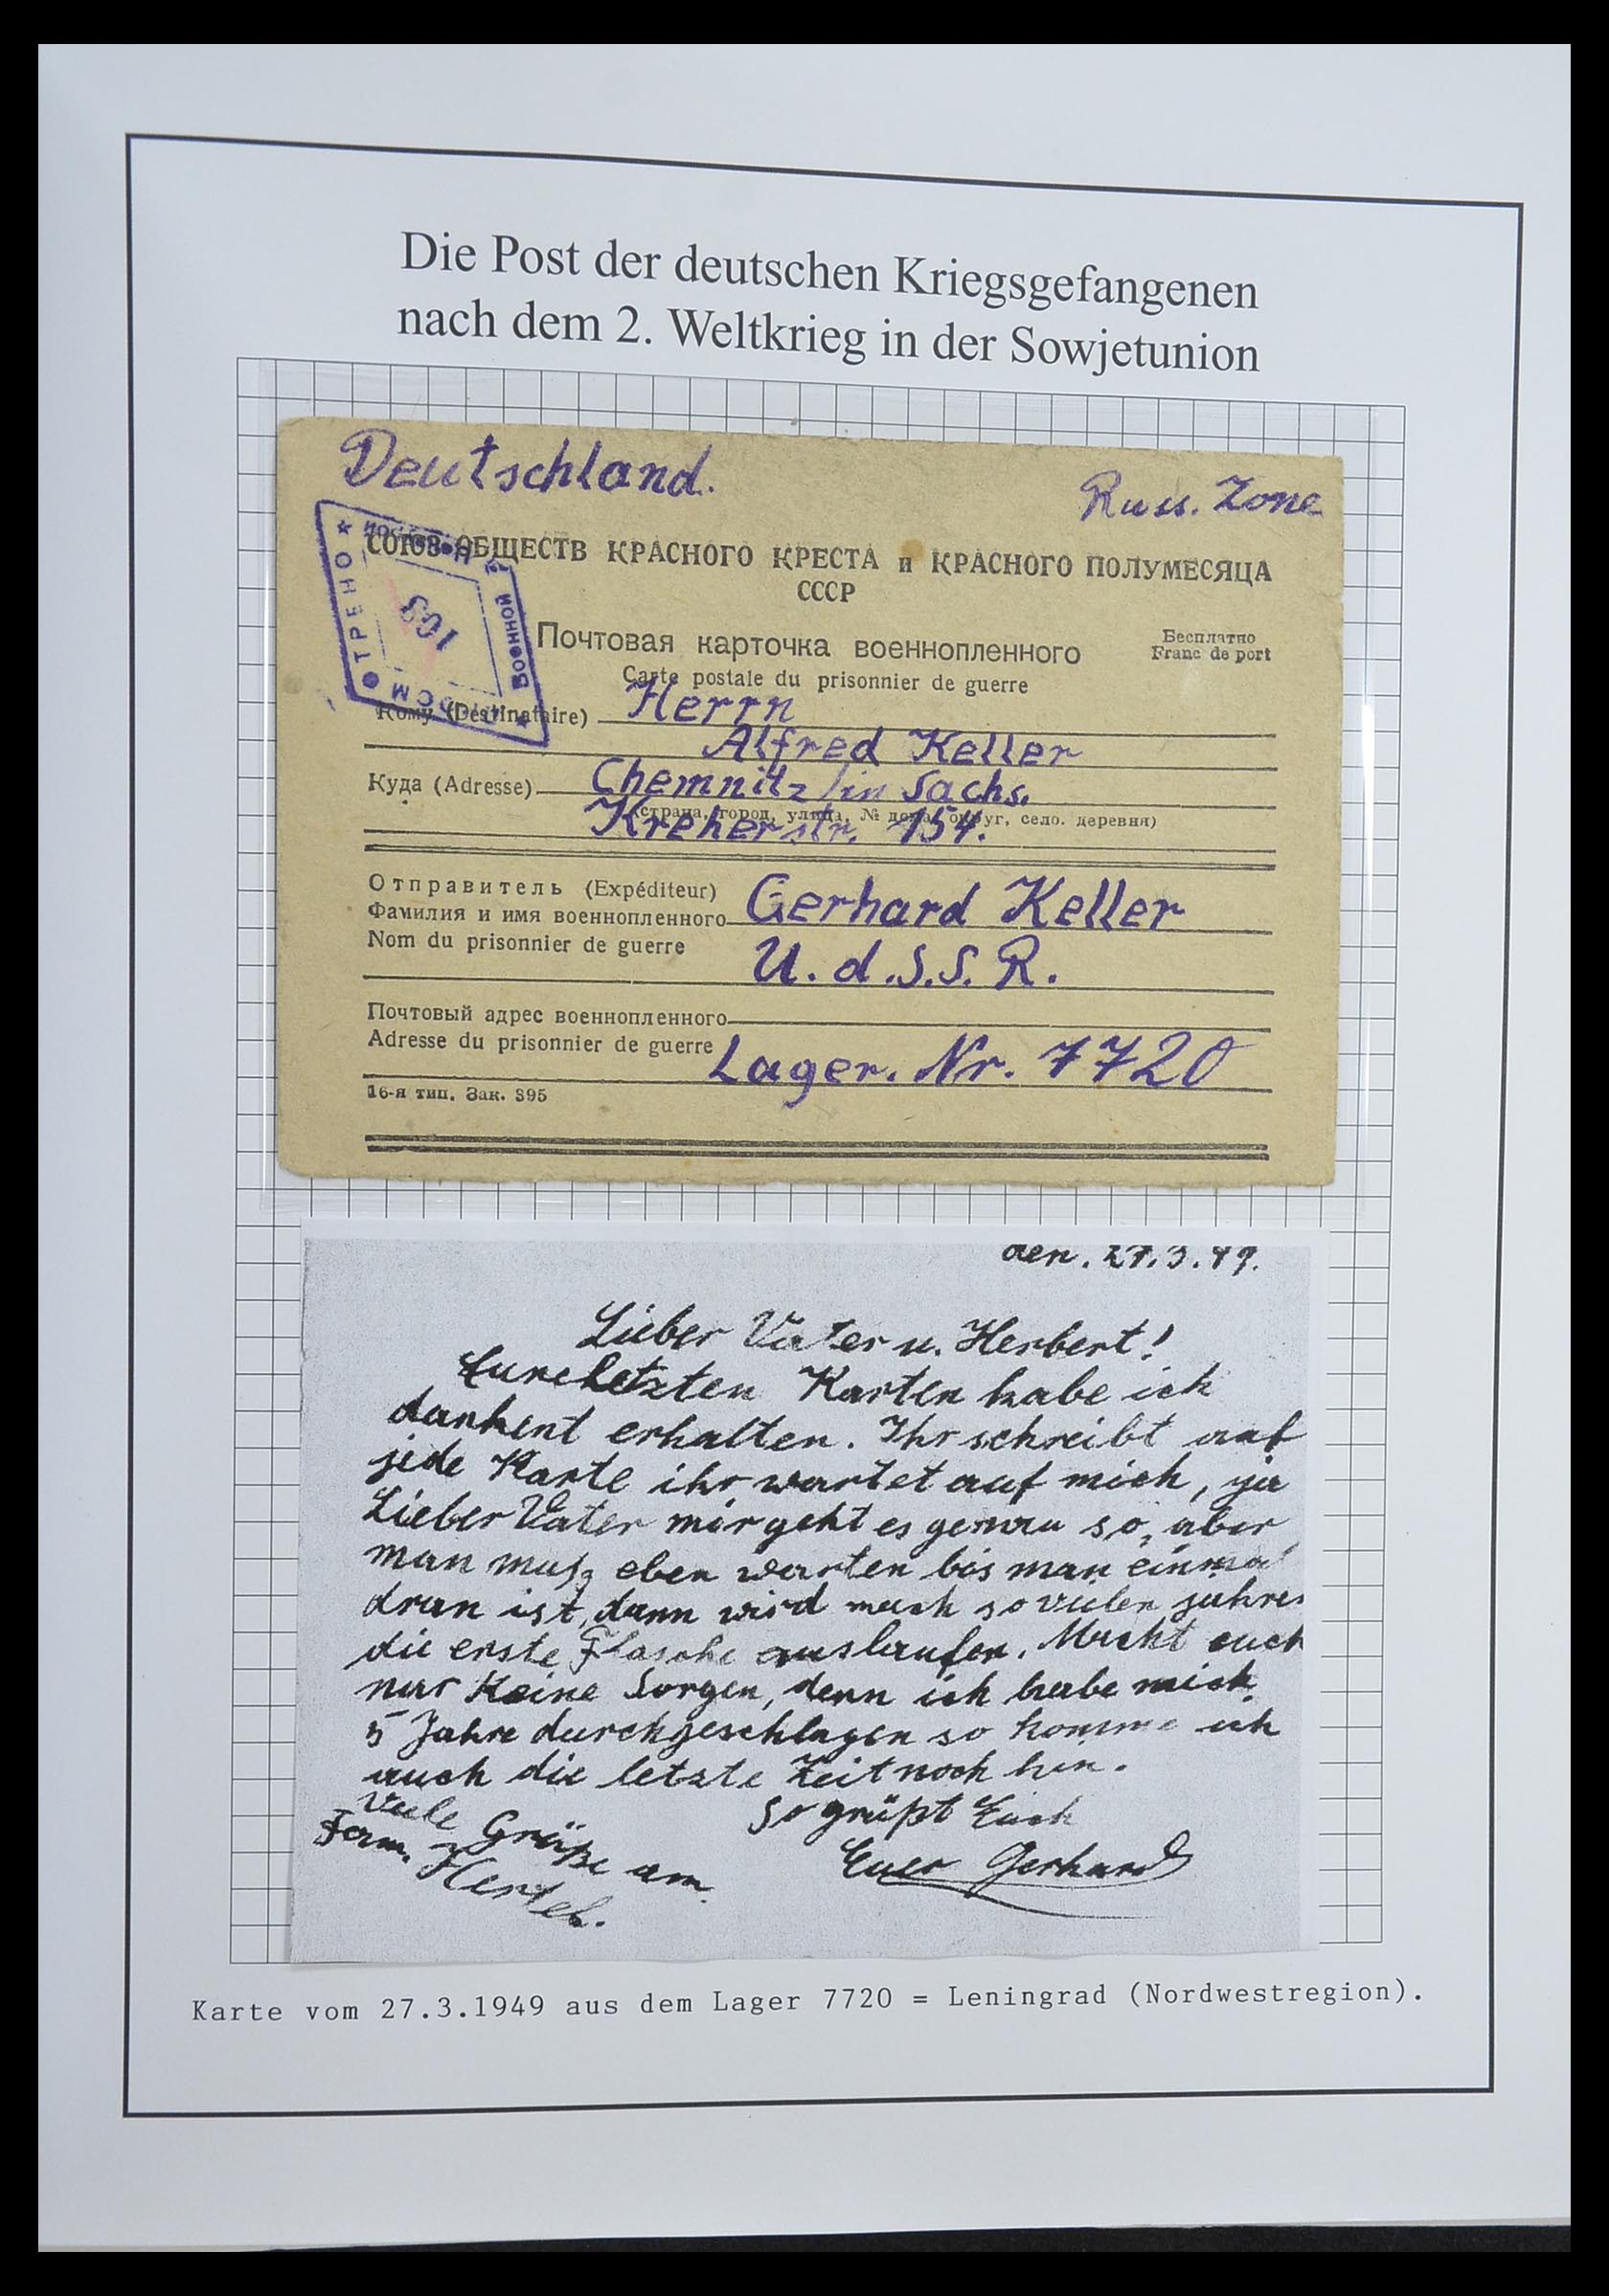 Die Post der deutschen Kriegsgefangenen
nach dem 2. Weltkrieg in der Sowjetunion
Deutschland.
Russ. Zone
СОЮЗ ОБЩЕСТВ КРАСНОГО КРЕСТА и КРАСНОГО ПОЛУМЕСЯЦА
СССР
ПРОСМОТРЕНО
ВОЕННОЙ
103
Почтовая карточка военнопленного
Бесплатно
Franc de port
Carte postale du prisonnier de guerre
Кому (Destinataire) Herrn
Alfred Keller
Куда (Adresse) Chemnitz / in Sachs.
(страна, город, улица, № дома, округ, село, деревня)
Kreherstr. 154.
Отправитель (Expéditeur)
Фамилия и имя военнопленного Gerhard Keller
Nom du prisonnier de guerre
U.d.S.S.R.
Почтовый адрес военнопленного
Adresse du prisonnier de guerre Lager. Nr. 7720
16-я тип. Зак. 395
den. 27.3.49.
Lieber Vater u. Herbert!
Eure letzten Karten habe ich
dankent erhalten. Ihr schreibt auf
jede Karte ihr wartet auf mich, ja
Lieber Vater mir geht es genau so, aber
man muß eben warten bis man einmal
dran ist, dann wird nach so vielen jahren
die erste Flasche auslaufen. Macht euch
nur Keine Sorgen, denn ich habe mich
5 Jahre durchgeschlagen so komme ich
auch die letzte Zeit noch hin.
Viele Grüße am
Fam. Hertel.
So grüßt Euch
Euer Gerhard
Karte vom 27.3.1949 aus dem Lager 7720 = Leningrad (Nordwestregion).